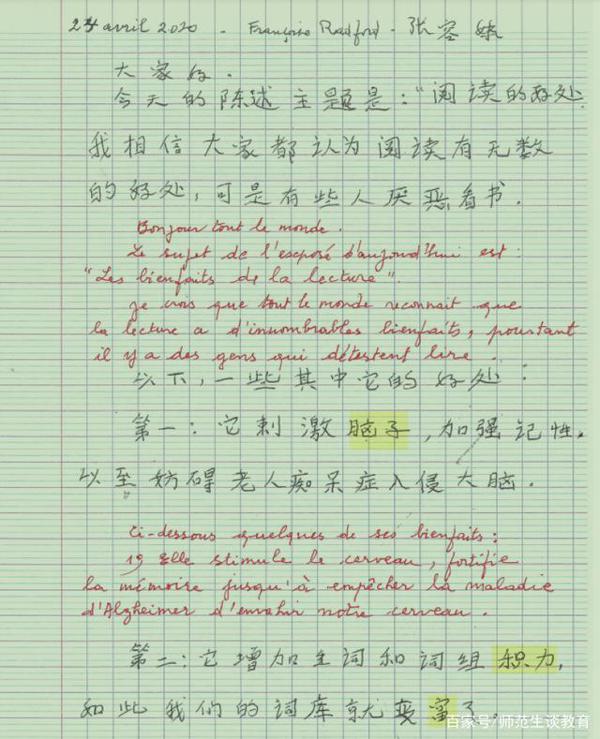 24 avril 2020 - Françoise Radford - 张容妹
大家好.
今天的陈述主题是: "阅读的好处.
我相信大家都认为阅读有无数
的好处, 可是有些人厌恶看书.
Bonjour tout le monde.
Le sujet de l'exposé d'aujourd'hui est:
"Les bienfaits de la lecture".
Je crois que tout le monde reconnait que
la lecture a d'innombrables bienfaits, pourtant
il y a des gens qui détestent lire.
以下, 一些其中它的好处:
第一: 它刺激脑子, 加强记性,
以至妨碍老人痴呆症入侵大脑.
Ci-dessous quelques de ses bienfaits:
1° Elle stimule le cerveau, fortifie
la mémoire jusqu'à empêcher la maladie
d'Alzheimer d'envahir notre cerveau.
第二: 它增加生词和词组积力,
如此我们的词库就变富了,
百家号/师范生谈教育